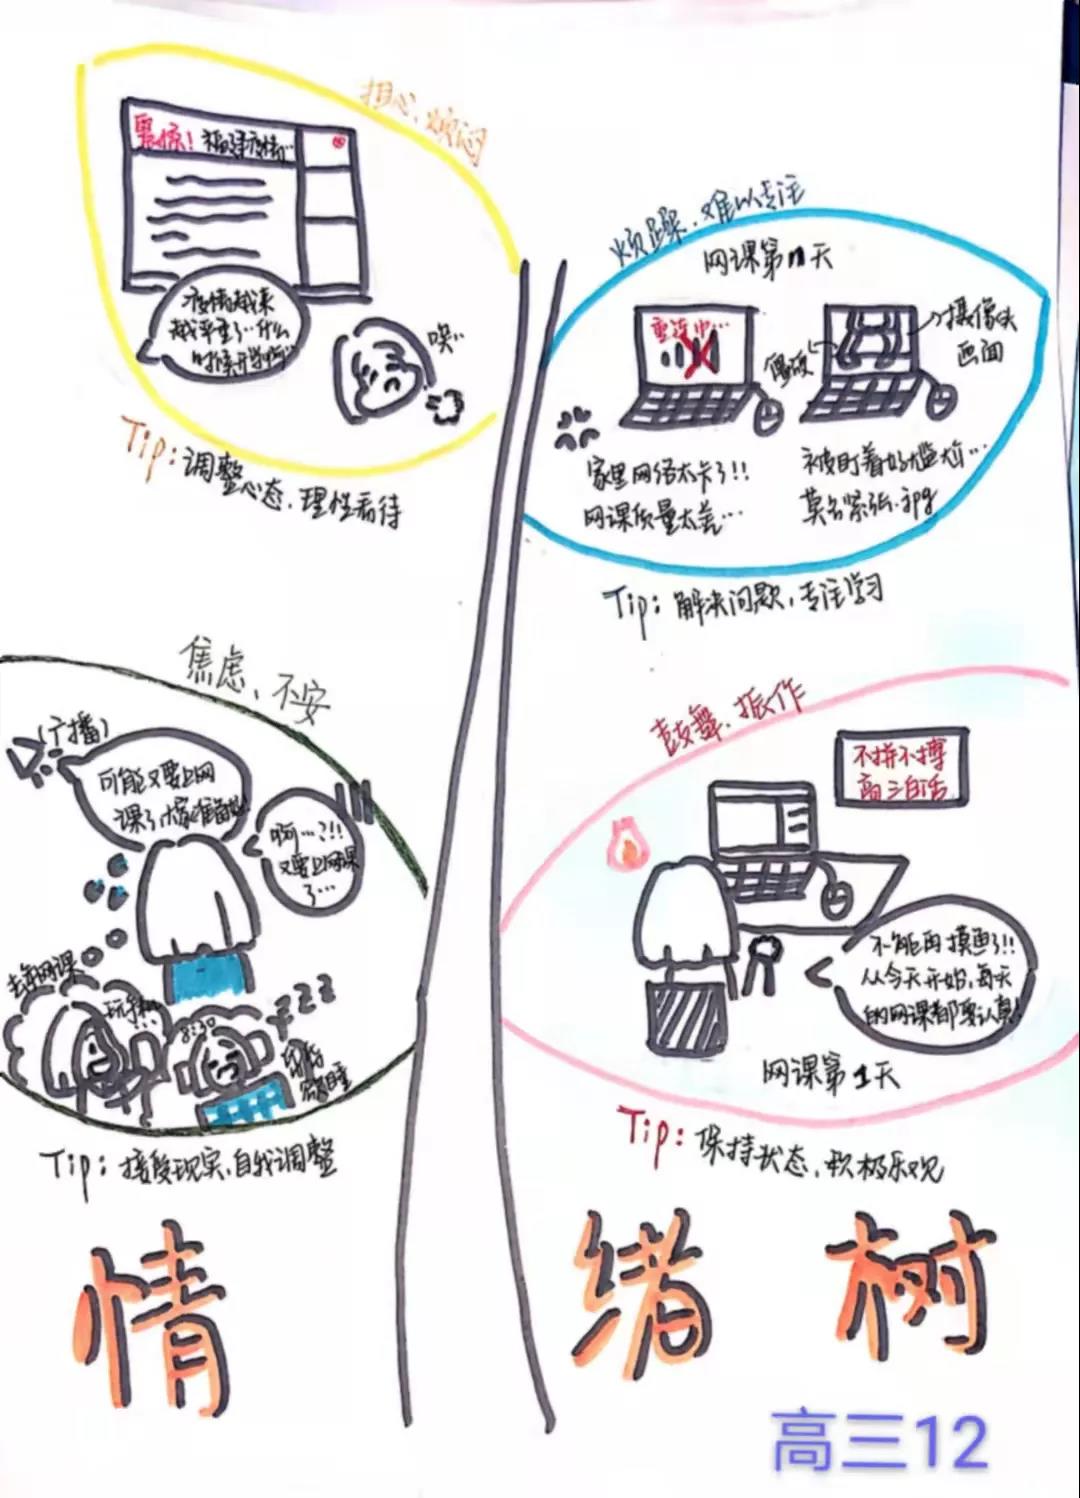 担心、烦闷
震惊！福建疫情…
疫情越来
越严重了…什么
时候开学啊
唉…
Tip：调整心态、理性看待
烦躁、难以专注
网课第n天
重连中…
僵硬
摄像头
画面
家里网络太卡了!!
网课质量太差…
被盯着好尴尬…
莫名紧张.jpg
Tip：解决问题，专注学习
焦虑、不安
(广播)
可能又要上网
课了,大家准备好!
啊…?!!
又要上网课
了…
去年网课
玩手机
8:30
zzz
昏昏
欲睡
Tip：接受现实，自我调整
鼓舞、振作
不拼不搏
高三白活
不能再摸鱼了!!
从今天开始，每天
的网课都要认真!
网课第1天
Tip：保持状态，积极乐观
情绪树
高三12